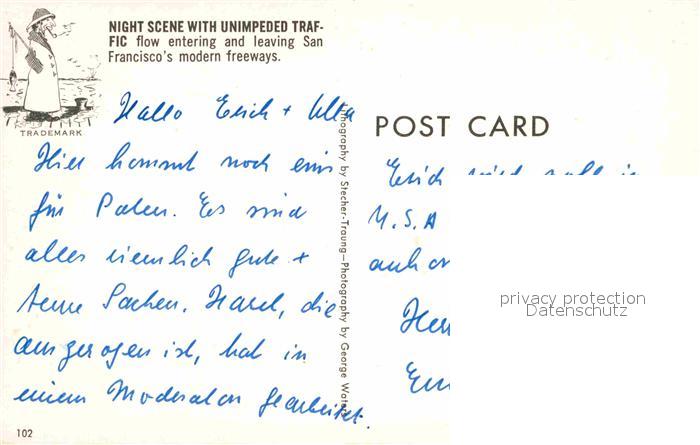 NIGHT SCENE WITH UNIMPEDED TRAF-
FIC flow entering and leaving San
Francisco's modern freeways.
TRADEMARK
Hallo Erich + Ulla
Hier kommt noch eins
für Paten. Es sind
alles ziemlich gute +
teure Sachen. Hazel, die
ausgezogen ist, hat in
einem Moderalon gearbeitet.
102
Lithography by Stecher-Traung—Photography by George Waters
POST CARD
Erich wird
U.S.A
privacy protection
Datenschutz